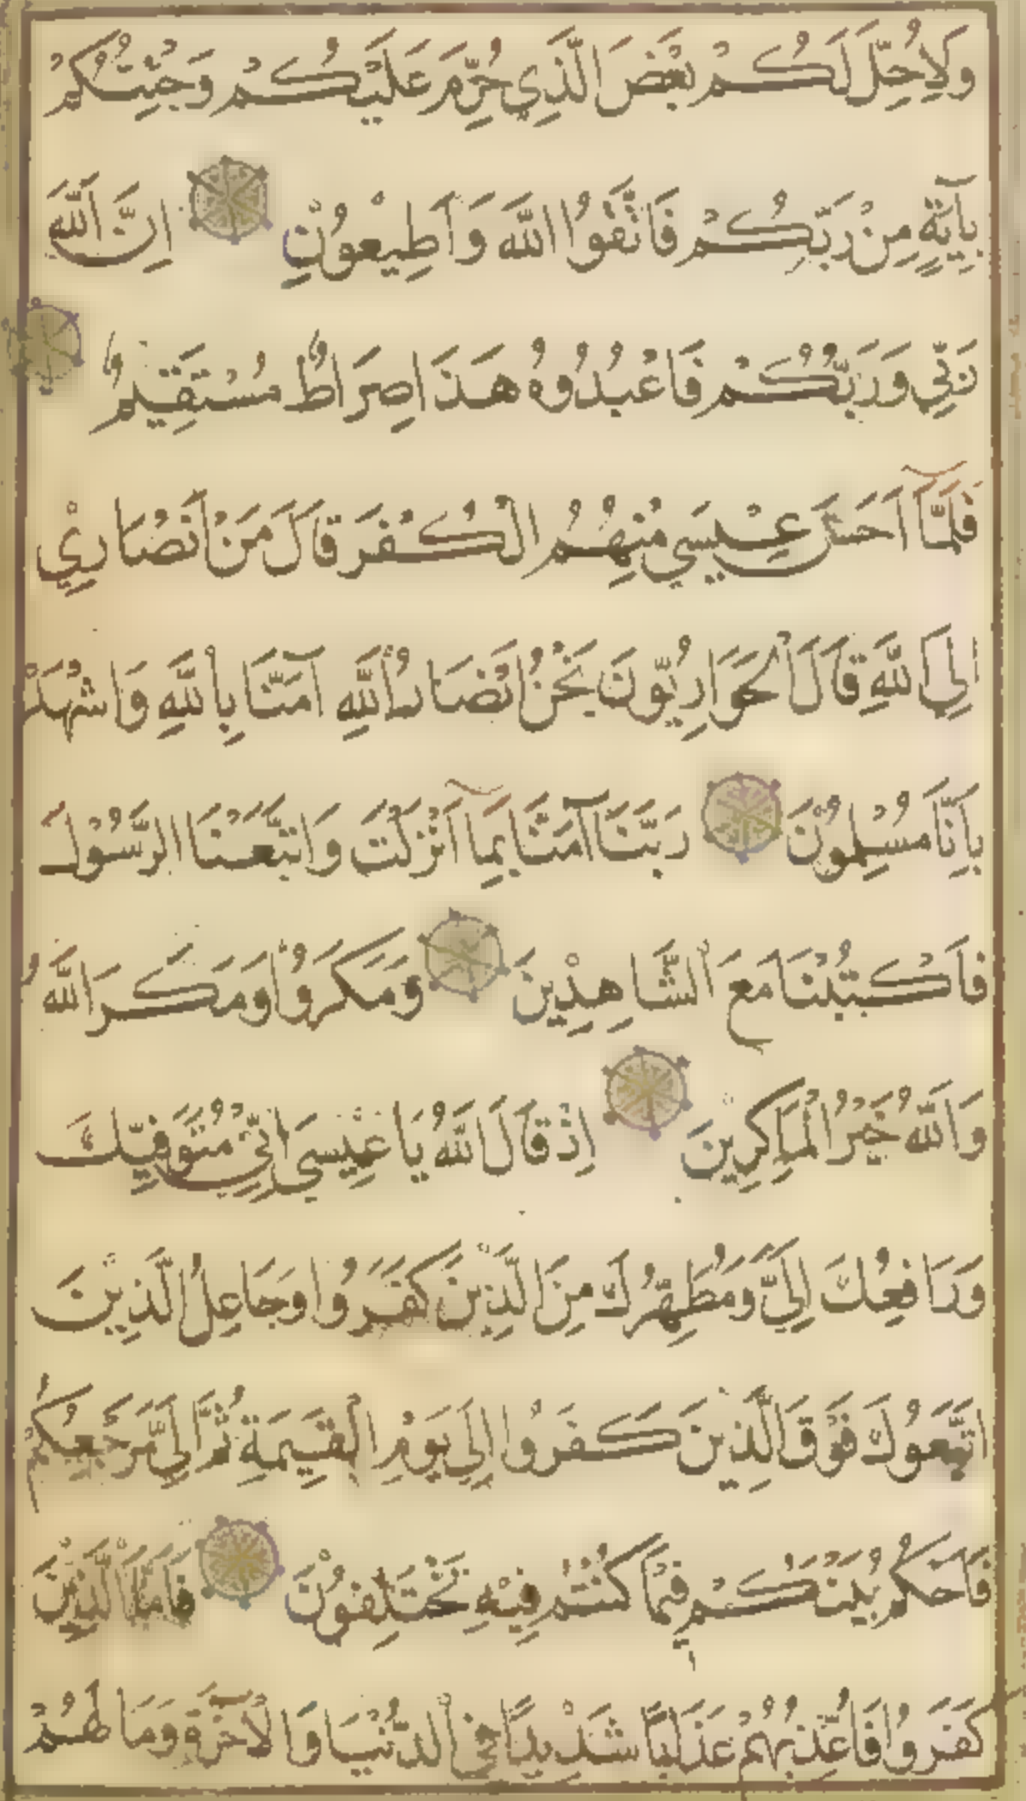 وَلِاُحِلَّ لَكُمْ بَعْضَ الَّذِي حُرِّمَ عَلَيْكُمْ وَجِئْتُكُمْ
بِآيَةٍ مِنْ رَبِّكُمْ فَاتَّقُوا اللَّهَ وَاَطِيعُونِ اِنَّ اللَّهَ
رَبِّي وَرَبُّكُمْ فَاعْبُدُوهُ هَذَا صِرَاطٌ مُسْتَقِيمٌ
فَلَمَّآ اَحَسَّ عِيسَى مِنْهُمُ الْكُفْرَ قَالَ مَنْ اَنْصَارِي
اِلَى اللَّهِ قَالَ الْحَوَارِيُّونَ نَحْنُ اَنْصَارُ اللَّهِ آمَنَّا بِاللَّهِ وَاشْهَدْ
بِاَنَّا مُسْلِمُونَ رَبَّنَا آمَنَّا بِمَآ اَنْزَلْتَ وَاتَّبَعْنَا الرَّسُولَ
فَاكْتُبْنَا مَعَ الشَّاهِدِينَ وَمَكَرُوا وَمَكَرَ اللَّهُ
وَاللَّهُ خَيْرُ الْمَاكِرِينَ اِذْ قَالَ اللَّهُ يَا عِيسَى اِنِّي مُتَوَفِّيكَ
وَرَافِعُكَ اِلَيَّ وَمُطَهِّرُكَ مِنَ الَّذِينَ كَفَرُوا وَجَاعِلُ الَّذِينَ
اتَّبَعُوكَ فَوْقَ الَّذِينَ كَفَرُوا اِلَى يَوْمِ الْقِيَمَةِ ثُمَّ اِلَيَّ مَرْجِعُكُمْ
فَاَحْكُمُ بَيْنَكُمْ فِيمَا كُنْتُمْ فِيهِ تَخْتَلِفُونَ فَاَمَّا الَّذِينَ
كَفَرُوا فَاُعَذِّبُهُمْ عَذَابًا شَدِيدًا فِي الدُّنْيَا وَالْآخِرَةِ وَمَا لَهُمْ